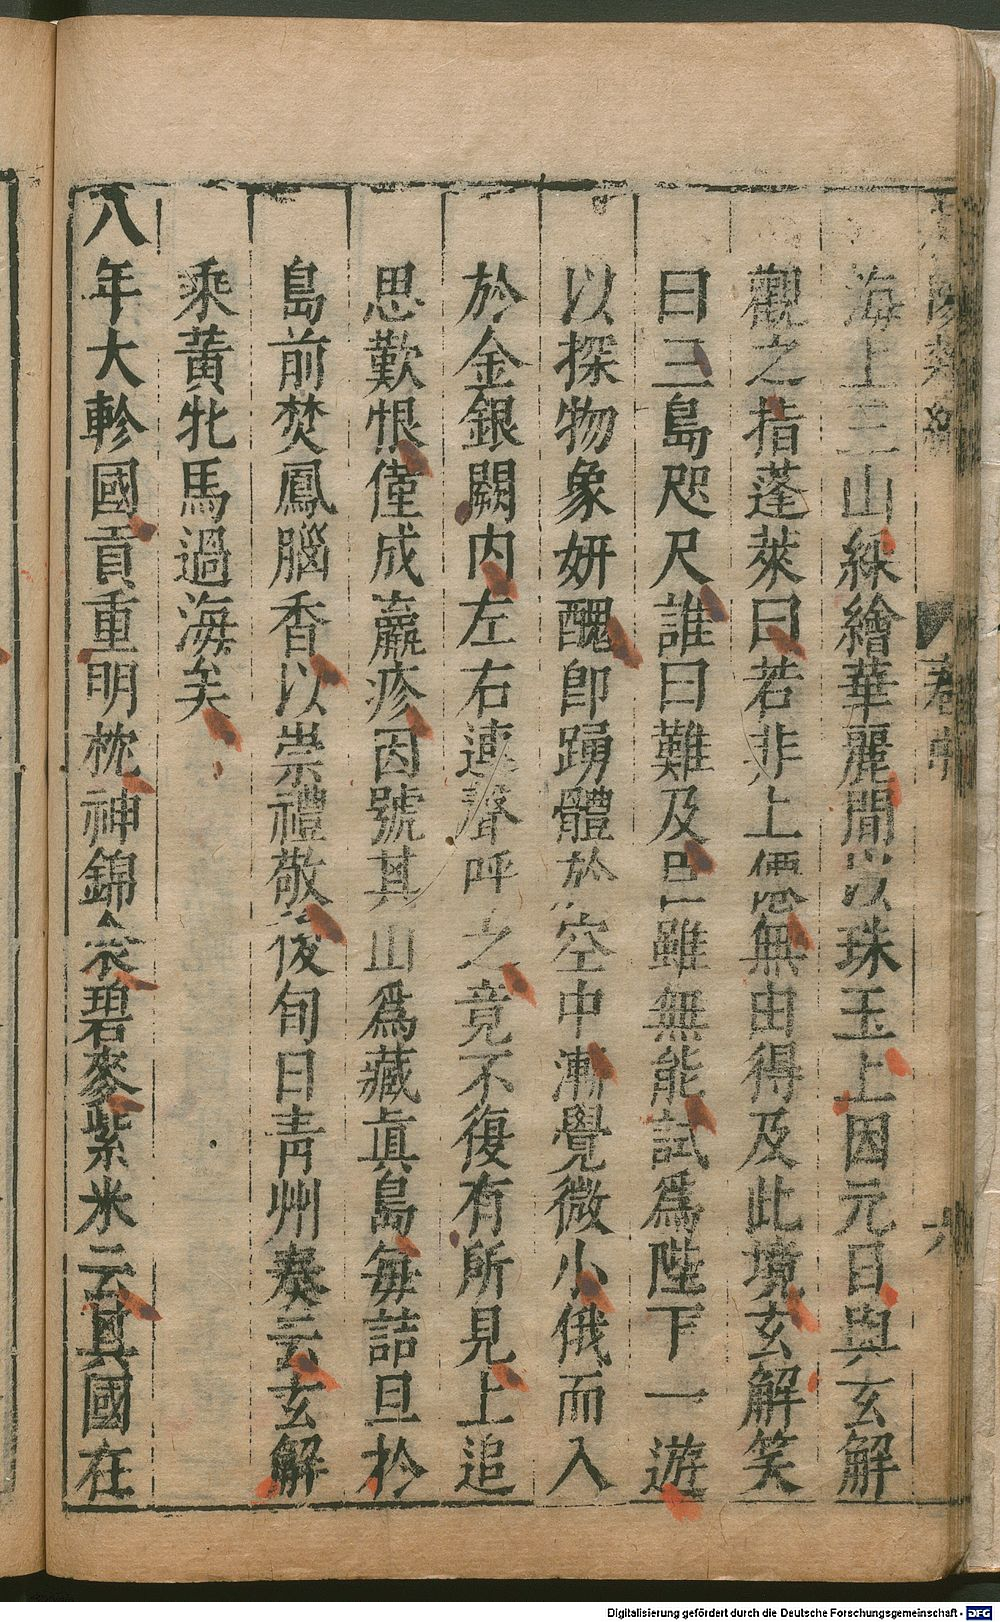 海上三山綵繪華麗間以珠玉上因元日與玄解
觀之指蓬萊曰若非上僊無由得及此境玄解笑
曰三島咫尺誰曰難及臣雖無能試爲陛下一遊
以探物象妍醜卽踴體於空中漸覺微小俄而入
於金銀闕內左右連聲呼之竟不復有所見上追
思歎恨僅成羸疹因號其山爲藏眞島每詰旦於
島前焚鳳腦香以崇禮敬後旬日靑州奏云玄解
乘黃牝馬過海矣
八年大軫國貢重明枕神錦衾碧麥紫米云其國在
Digitalisierung gefördert durch die Deutsche Forschungsgemeinschaft - DFG